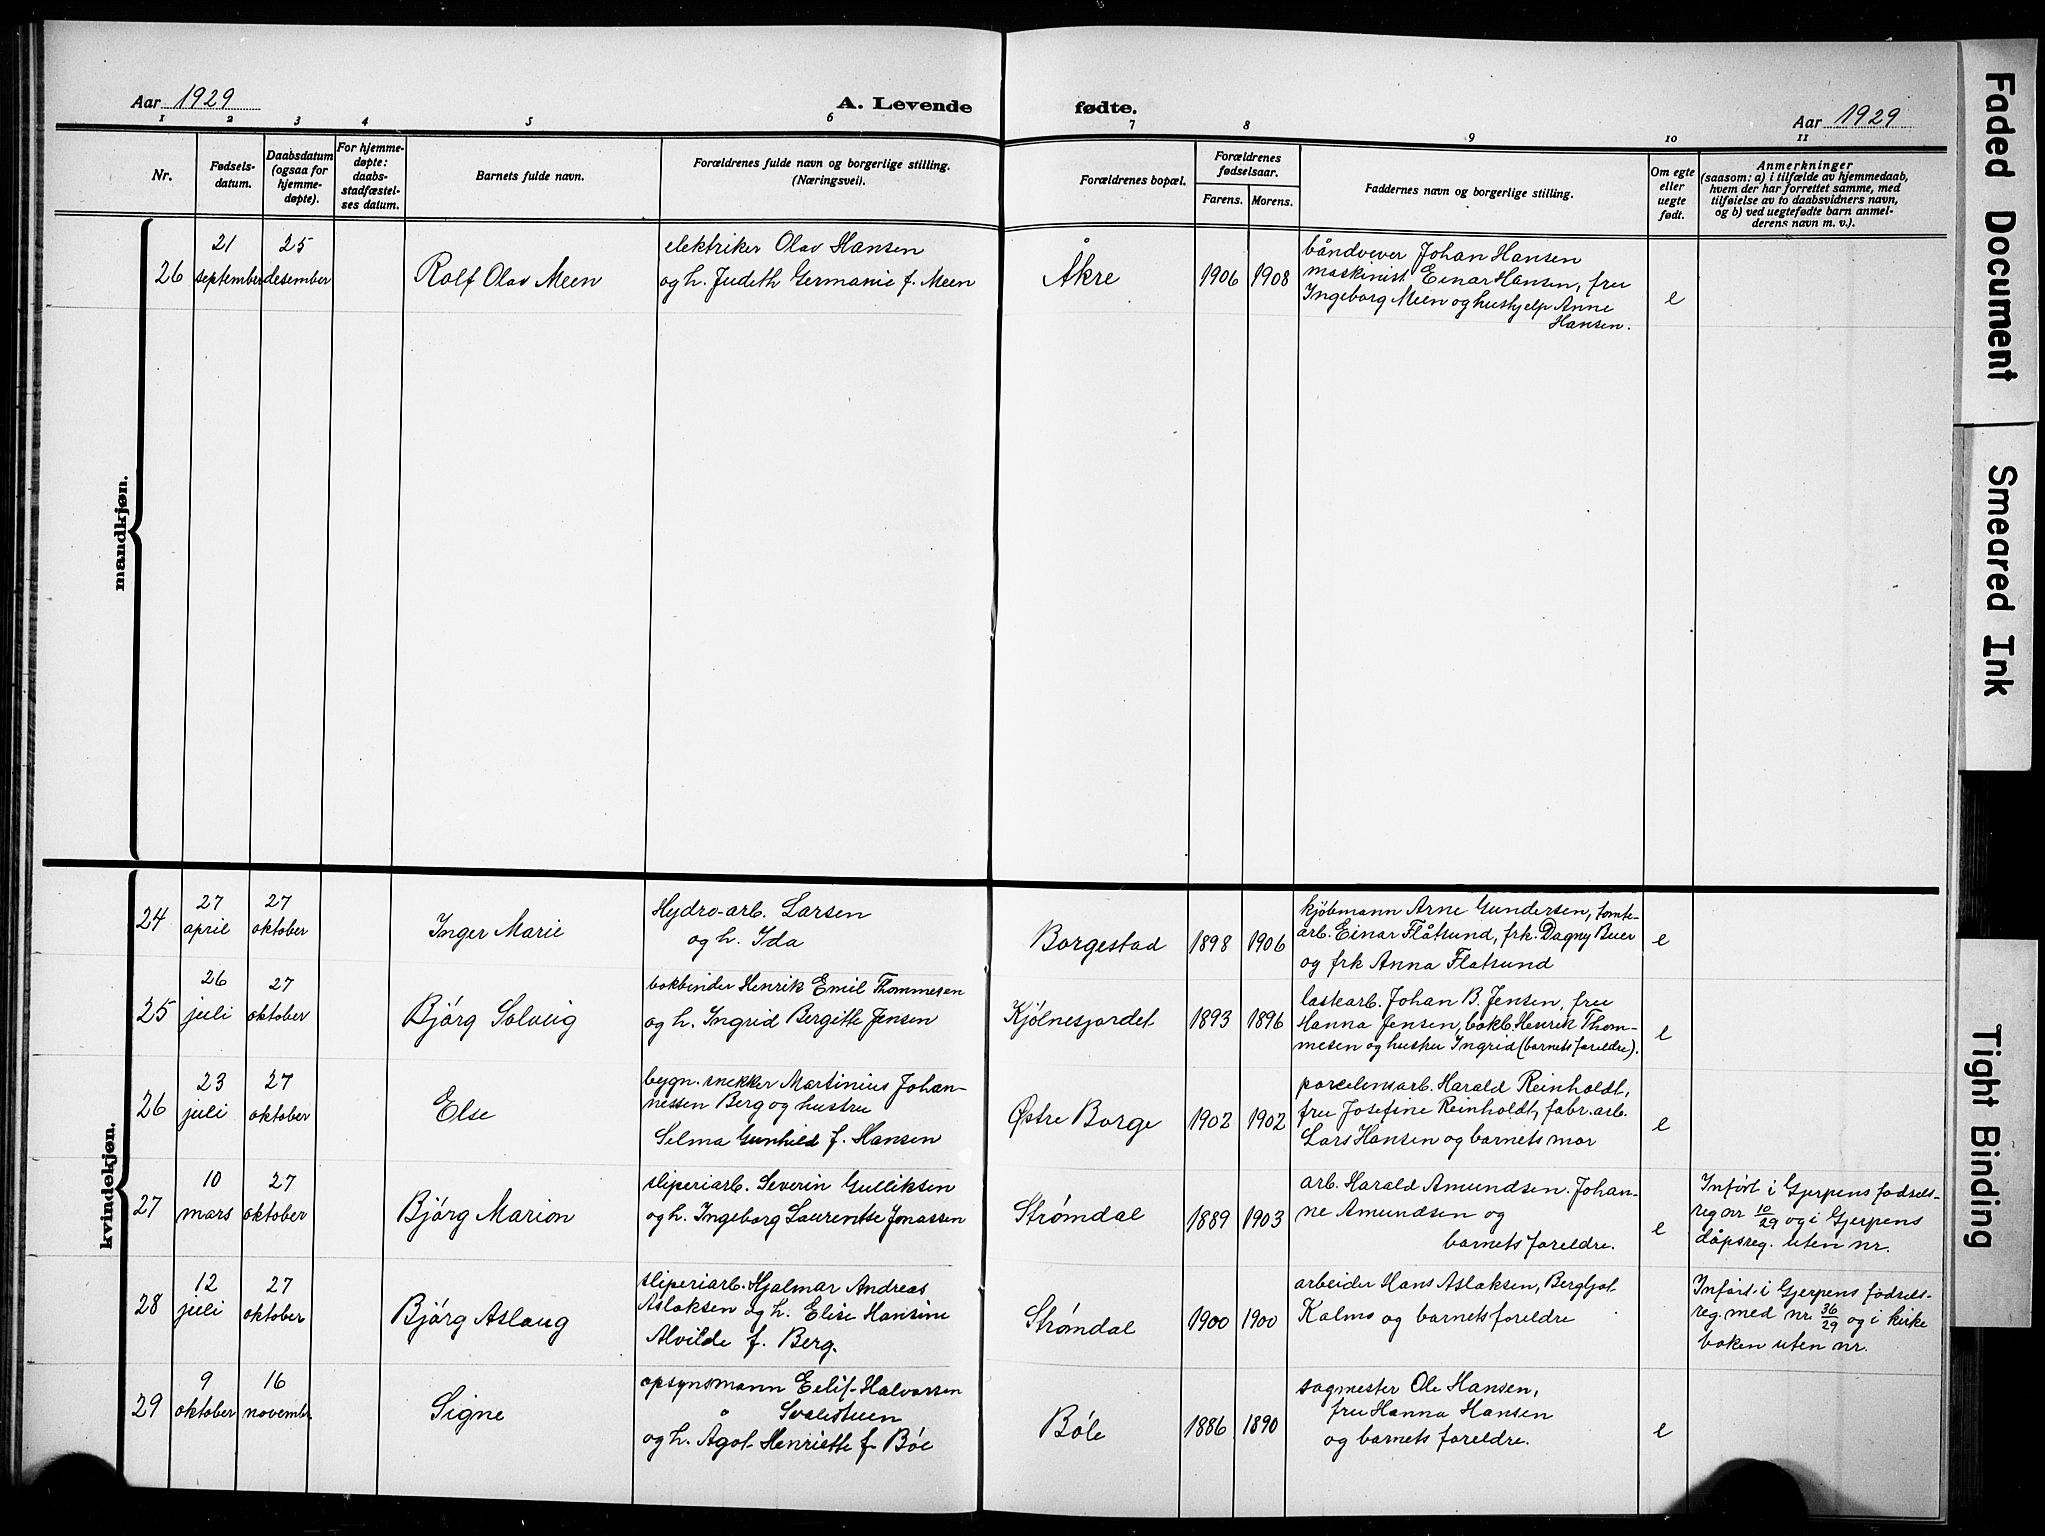 Aar 1929
A. Levende fødte.
Aar 1929
1 2 3 4 5 6 7 8 9 10 11
Nr.
Fødsels-
datum.
Daabsdatum
(ogsaa for
hjemme-
døpte).
For hjemme-
døpte:
daabs-
stadfæstel-
ses datum.
Barnets fulde navn.
Forældrenes fulde navn og borgerlige stilling.
(Næringsvei).
Forældrenes bopæl.
Forældrenes
fødselsaar.
Farens. Morens.
Faddernes navn og borgerlige stilling.
Om egte
eller
uegte
født.
Anmerkninger
(saasom: a) i tilfælde av hjemmedaab,
hvem der har forrettet samme, med
tilføielse av to daabsvidners navn,
og b) ved uegtefødte barn anmel-
derens navn m. v.).
mandkjøn.
26
21
september
25
desember
Rolf Olav Meen
elektriker Olav Hansen
og h. Judeth Germanie f. Meen
Åkre
1906
1908
båndvever Johan Hansen
maskinist Einar Hansen, fru
Ingeborg Meen og hushjelp Anne
Hansen.
e
kvindekjøn.
24
27
april
27
oktober
Inger Marie
Hydro-arb. Larsen
og h. Ida
Borgestad
1898
1906
kjøbmann Arne Gundersen, tomte-
arb. Einar Flåtsund, frk. Dagny Buer
og frk Anna Flatsund
e
25
26
juli
27
oktober
Bjørg Solveig
bokbinder Henrik Emil Thommesen
og h. Ingrid Bergitte Jensen
Kjølnesjordet
1893
1896
laskarb. Johan B. Jensen, fru
Hanna Jensen, bokb. Henrik Thom-
mesen og hustru Ingrid (barnets foreldre).
e
26
23
juli
27
oktober
Else
bygn. snekker Martinius Johan-
nessen Berg og hustru
Selma Gunhild f. Hansen
Østre Borge
1902
1902
porcelensarb. Harald Reinholdt,
fru Josefine Reinholdt, fabr. arb.
Lars Hansen og barnets mor
e
27
10
mars
27
oktober
Bjørg Marion
sliperiarb. Severin Gulliksen
og h. Ingeborg Laurentse Jonassen
Strømdal
1889
1903
arb. Harald Amundsen. Johan-
ne Amundsen og
barnets foreldre.
e
Inført i Gjerpens fødsels-
reg nr 10/29 og i Gjerpens
dåpsreg. uten nr.
28
12
juli
27
oktober
Bjørg Aslaug
sliperiarb. Hjalmar Andreas
Aslaksen og h. Elise Hansine
Alvilde f. Berg.
Strømdal
1900
1900
arbeider Hans Aslaksen, Bergljot
Kalmo og barnets foreldre
Inført i Gjerpens fødsels-
reg. med nr. 36/29 og i kirke
boken uten nr.
29
9
oktober
16
novembr.
Signe
opsynsmann Eilif Halvorsen
Svalestuen
og h. Ågot Henriette f. Bøe
Bøle
1886
1890
sagmester Ole Hansen,
fru Hanna Hansen
og barnets foreldre.
e
Faded Document
Smeared Ink
Tight Binding